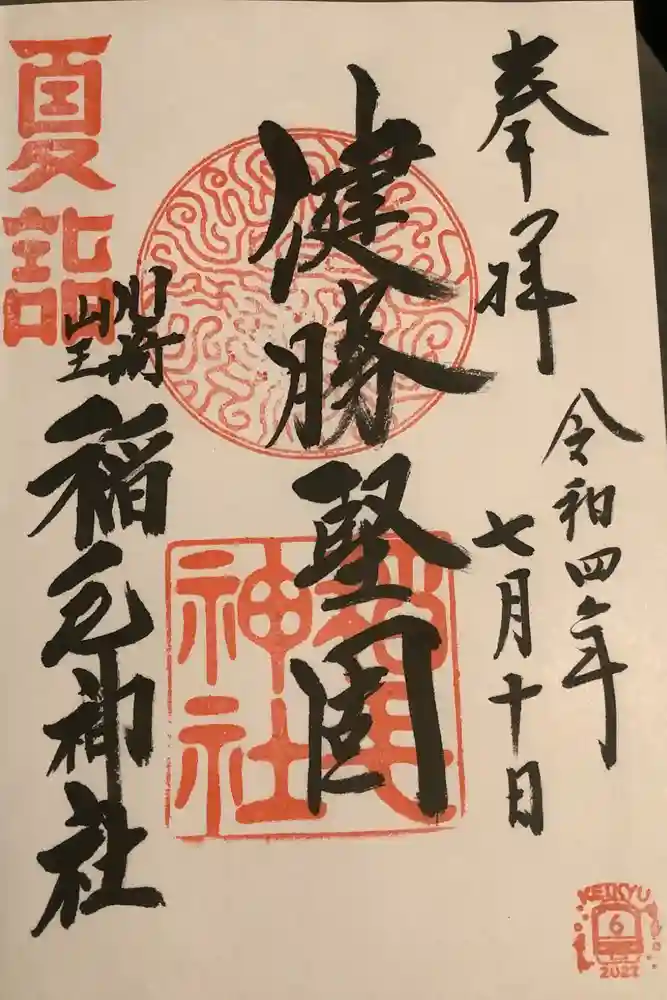 奉拝
令和四年
七月十日
健勝堅固
川崎
山王
稲毛神社
夏詣
稲毛
神社
KEIKYU
6
2022